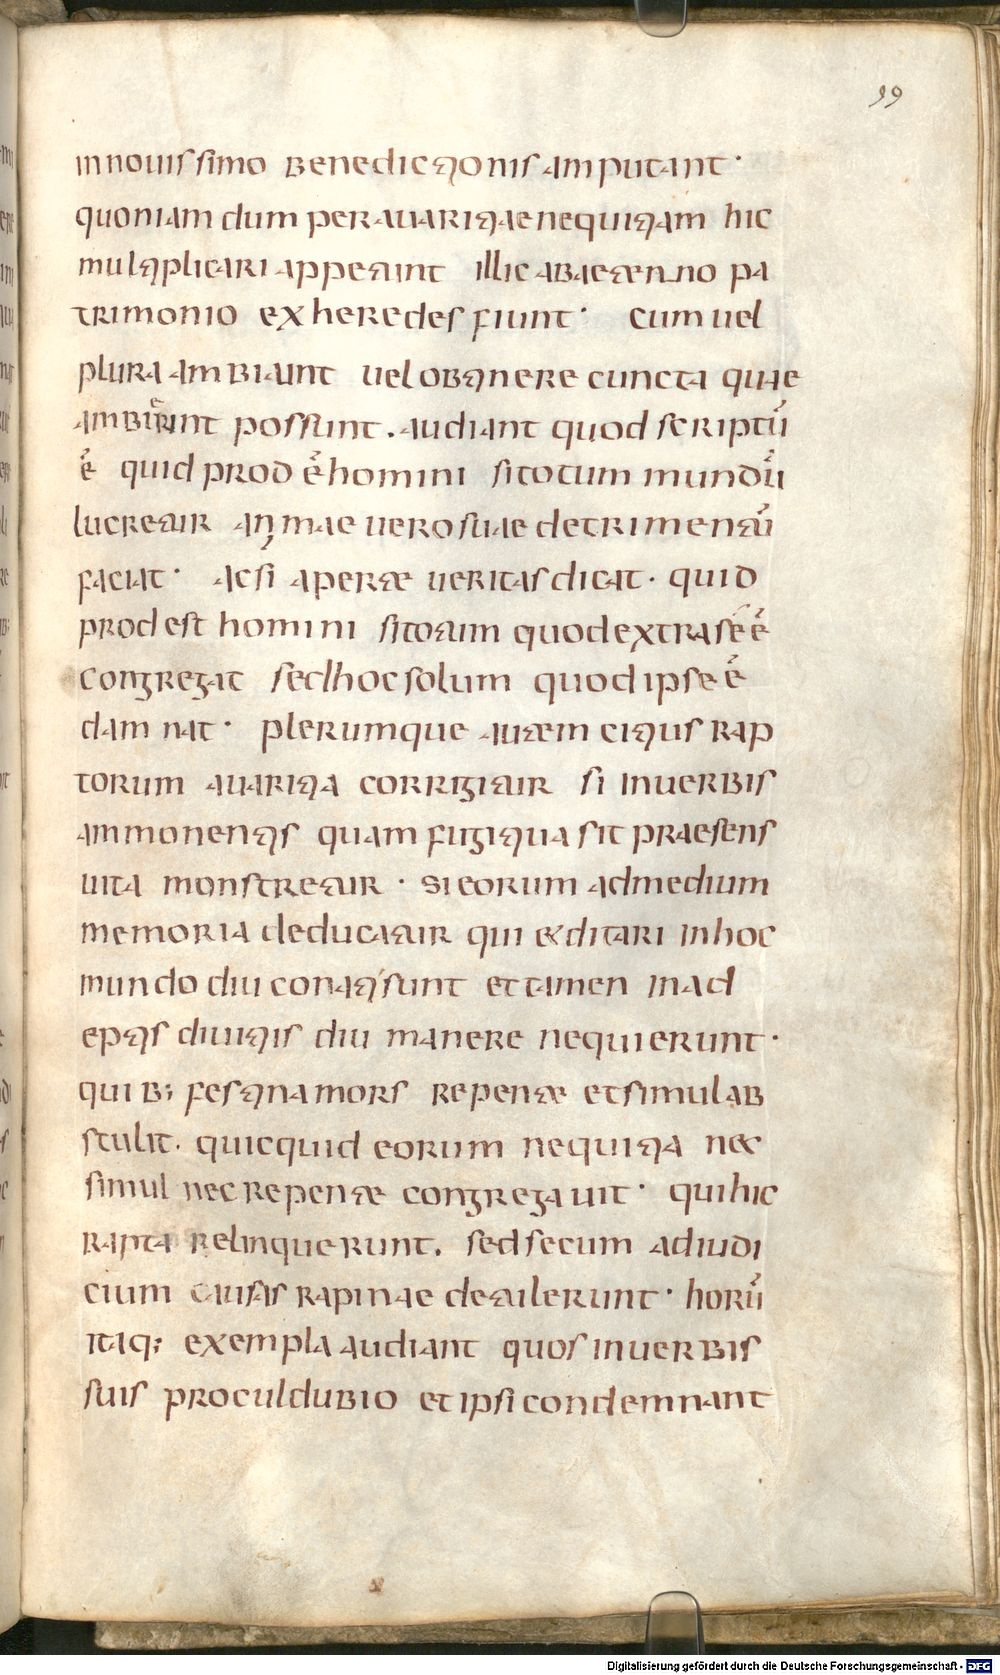 99
in nouissimo benedictionis amputant·
quoniam dum per auaritiae nequitiam hic
multiplicari appetunt illic ab aeterno pa
trimonio exheredes fiunt· cum uel
plura ambiunt uel obtinere cuncta quae
ambiunt possunt. audiant quod scriptū
ē quid prodē homini si totum mundū
lucretur animae uero suae detrimentū
faciat· ac si aperte ueritas dicat· quid
prodest homini si totum quod extra se ē
congregat sed hoc solum quod ipse ē
damnat· plerumque autem citius rap
torum auaritia corrigitur si in uerbis
ammonentis quam fugitiua sit praesens
uita monstretur· si eorum ad medium
memoria deducatur qui et ditari in hoc
mundo diu conati sunt et tamen in ad
eptis diuitis diu manere nequierunt·
quib; festina mors repente et simul ab
stulit. quicquid eorum nequitia nec
simul nec repente congregauit· qui hic
rapta relinquerunt. sed secum ad iudi
cium causas rapinae detulerunt· horū
itaq; exempla audiant quos in uerbis
suis procul dubio et ipsi condemnant
Digitalisierung gefördert durch die Deutsche Forschungsgemeinschaft - DFG